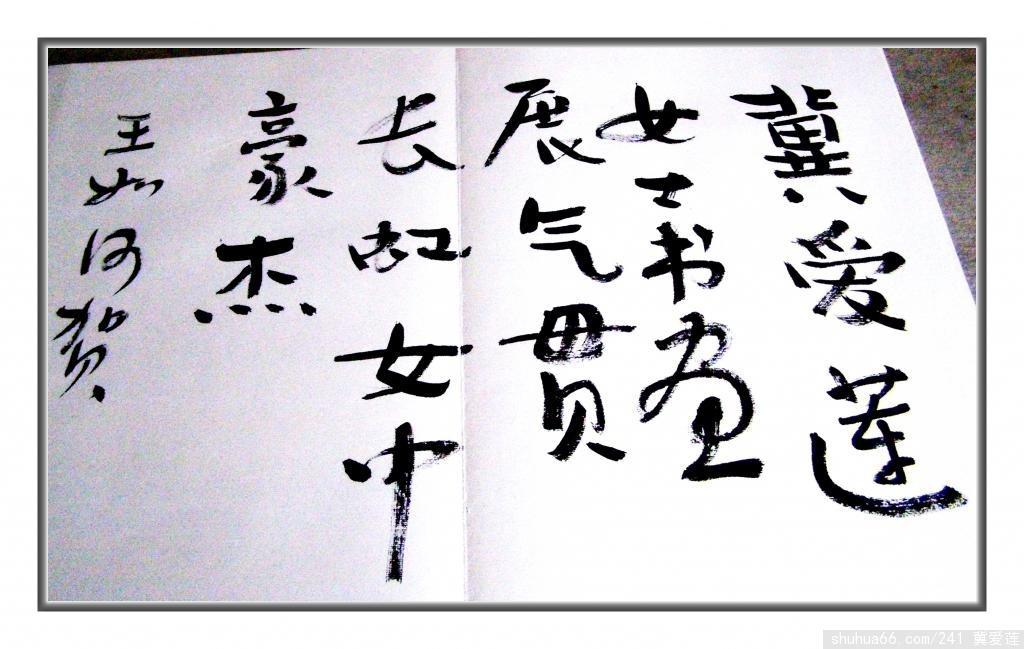 冀爱莲
女士书画
展气贯
长虹女中
豪杰
王如何贺
shuhua66.com/241 冀爱莲